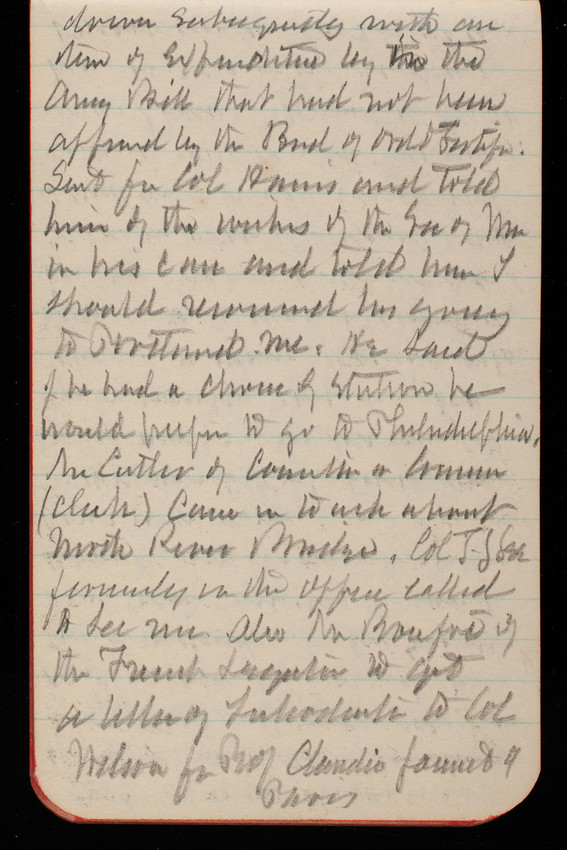 down subsequently with an
item of Expenditure by the
Army Bill that had not been
approved by the Board of Ord & Fortifn.
Sent for Col Hains and told
him of the wishes of the Sec of War
in his case and told him I
should recommend his going
to Portland. Me. He said
if he had a choice of station he
would prefer to go to Philadelphia.
Mr Cutler of Committee on Commerce
(Clerk) Came in to ask about
North River Bridge. Col T. J
formerly in the office called
to see me also Mr of
the French Legation to get
a letter of Introduction to Col
Wilson for Prof Claudio of
Paris